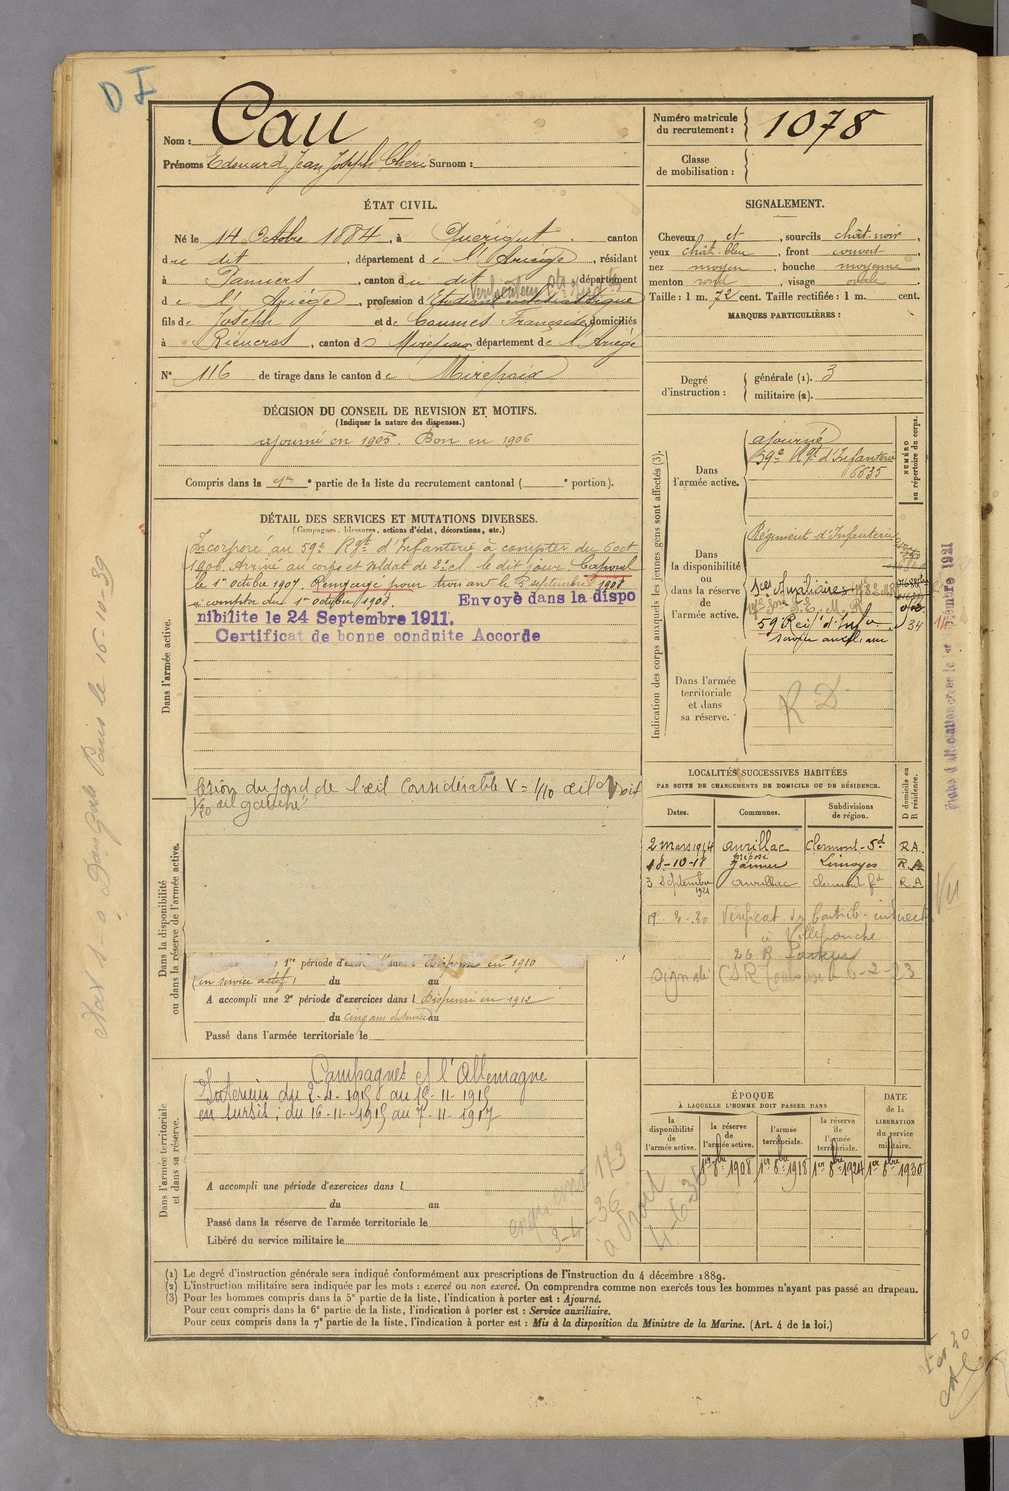 D I
Nom : Cau
Prénoms : Edouard, Jean, Joseph, Chéri Surnom :
Numéro matricule du recrutement : 1078
Classe de mobilisation :
ÉTAT CIVIL.
Né le 14 Octobre 1884, à Quérigut canton
du dit, département de l'Ariège, résidant
à Pamiers, canton du dit département
Vérificateur
de l'Ariège, profession d' Etudiant ecclésiastique
fils de Joseph et de Coumes Françoise domiciliés
à Rieucros, canton de Mirepoix département de l'Ariège
N° 116 de tirage dans le canton de Mirepoix
SIGNALEMENT.
Cheveux et , sourcils chât-noir,
yeux chât. bleu, front couvert
nez moyen, bouche moyenne
menton rond, visage ovale.
Taille : 1 m. 72 cent. Taille rectifiée : 1 m. cent.
MARQUES PARTICULIÈRES :
Degré d'instruction : générale (1). 3
militaire (2).
DÉCISION DU CONSEIL DE REVISION ET MOTIFS.
(Indiquer la nature des dispenses.)
ajourné en 1905. Bon en 1906
Compris dans la 1re e partie de la liste du recrutement cantonal ( e portion).
DÉTAIL DES SERVICES ET MUTATIONS DIVERSES.
(Campagnes, blessures, actions d'éclat, décorations, etc.)
Dans l'armée active.
Incorporé au 59e Rgt d'Infanterie à compter du 6 oct
1906. Arrivé au corps et soldat de 2e cl. le dit jour. Caporal
le 1er octobre 1907. Rengagé pour trois ans le septembre 1908
à compter du 1er octobre 1908.
Envoyé dans la dispo
nibilite le 24 Septembre 1911.
Certificat de bonne conduite Accorde
lésion du fond de l'œil considérable V = 1/10 œil droit
1/20 œil gauche
Dans la disponibilité
ou dans la réserve de l'armée active.
1re période d'exercices dans Dispensé en 1910
(en service actif) du au
A accompli une 2e période d'exercices dans l Dispensé en 1912
du cinq ans de service au
Passé dans l'armée territoriale le
Dans l'armée territoriale
et dans sa réserve.
Campagnes et l'Allemagne
Intérieur du 2-4-1915 au 15-11-1915
en sursis : du 16-11-1915 au 7-11-1917
A accompli une période d'exercices dans l
du au
Passé dans la réserve de l'armée territoriale le
Libéré du service militaire le
Indication des corps auxquels les jeunes gens sont affectés (3).
NUMÉRO
au répertoire du corps.
Dans l'armée active.
ajourné
59e Rgt d'Infanterie
6635
Dans la disponibilité ou dans la réserve de l'armée active.
Régiment d'Infanterie
Sces Auxiliaires
59 Rei d'Infie 34
service auxiliaire
Dans l'armée territoriale et dans sa réserve.
R D
LOCALITÉS SUCCESSIVES HABITÉES
PAR SUITE DE CHANGEMENTS DE DOMICILE OU DE RÉSIDENCE.
Dates. Communes. Subdivisions de région. D domicile ou R résidence.
2 mars 1914 Aurillac Clermont-Fd R.A.
18-10-18 Limoges R.A
3 Septembre 1921 Aurillac Clermont Fd R.A
19-2-30 Vérificat. des Contrib. indirect.
à Villefranche
26 R
signalé CSR Toulouse 6-2-33
ÉPOQUE
À LAQUELLE L'HOMME DOIT PASSER DANS
DATE de la LIBÉRATION du service militaire.
la disponibilité de l'armée active.
la réserve de l'armée active.
l'armée territoriale.
la réserve de l'armée territoriale.
1er 8bre 1908 1er 8bre 1918 1er 8bre 1924 1er 8bre 1930
(1) Le degré d'instruction générale sera indiqué conformément aux prescriptions de l'instruction du 4 décembre 1889.
(2) L'instruction militaire sera indiquée par les mots : exercé ou non exercé. On comprendra comme non exercés tous les hommes n'ayant pas passé au drapeau.
(3) Pour les hommes compris dans la 5e partie de la liste, l'indication à porter est : Ajourné.
Pour ceux compris dans la 6e partie de la liste, l'indication à porter est : Service auxiliaire.
Pour ceux compris dans la 7e partie de la liste, l'indication à porter est : Mis à la disposition du Ministre de la Marine. (Art. 4 de la loi.)
Paris le 16-10-39
Vu